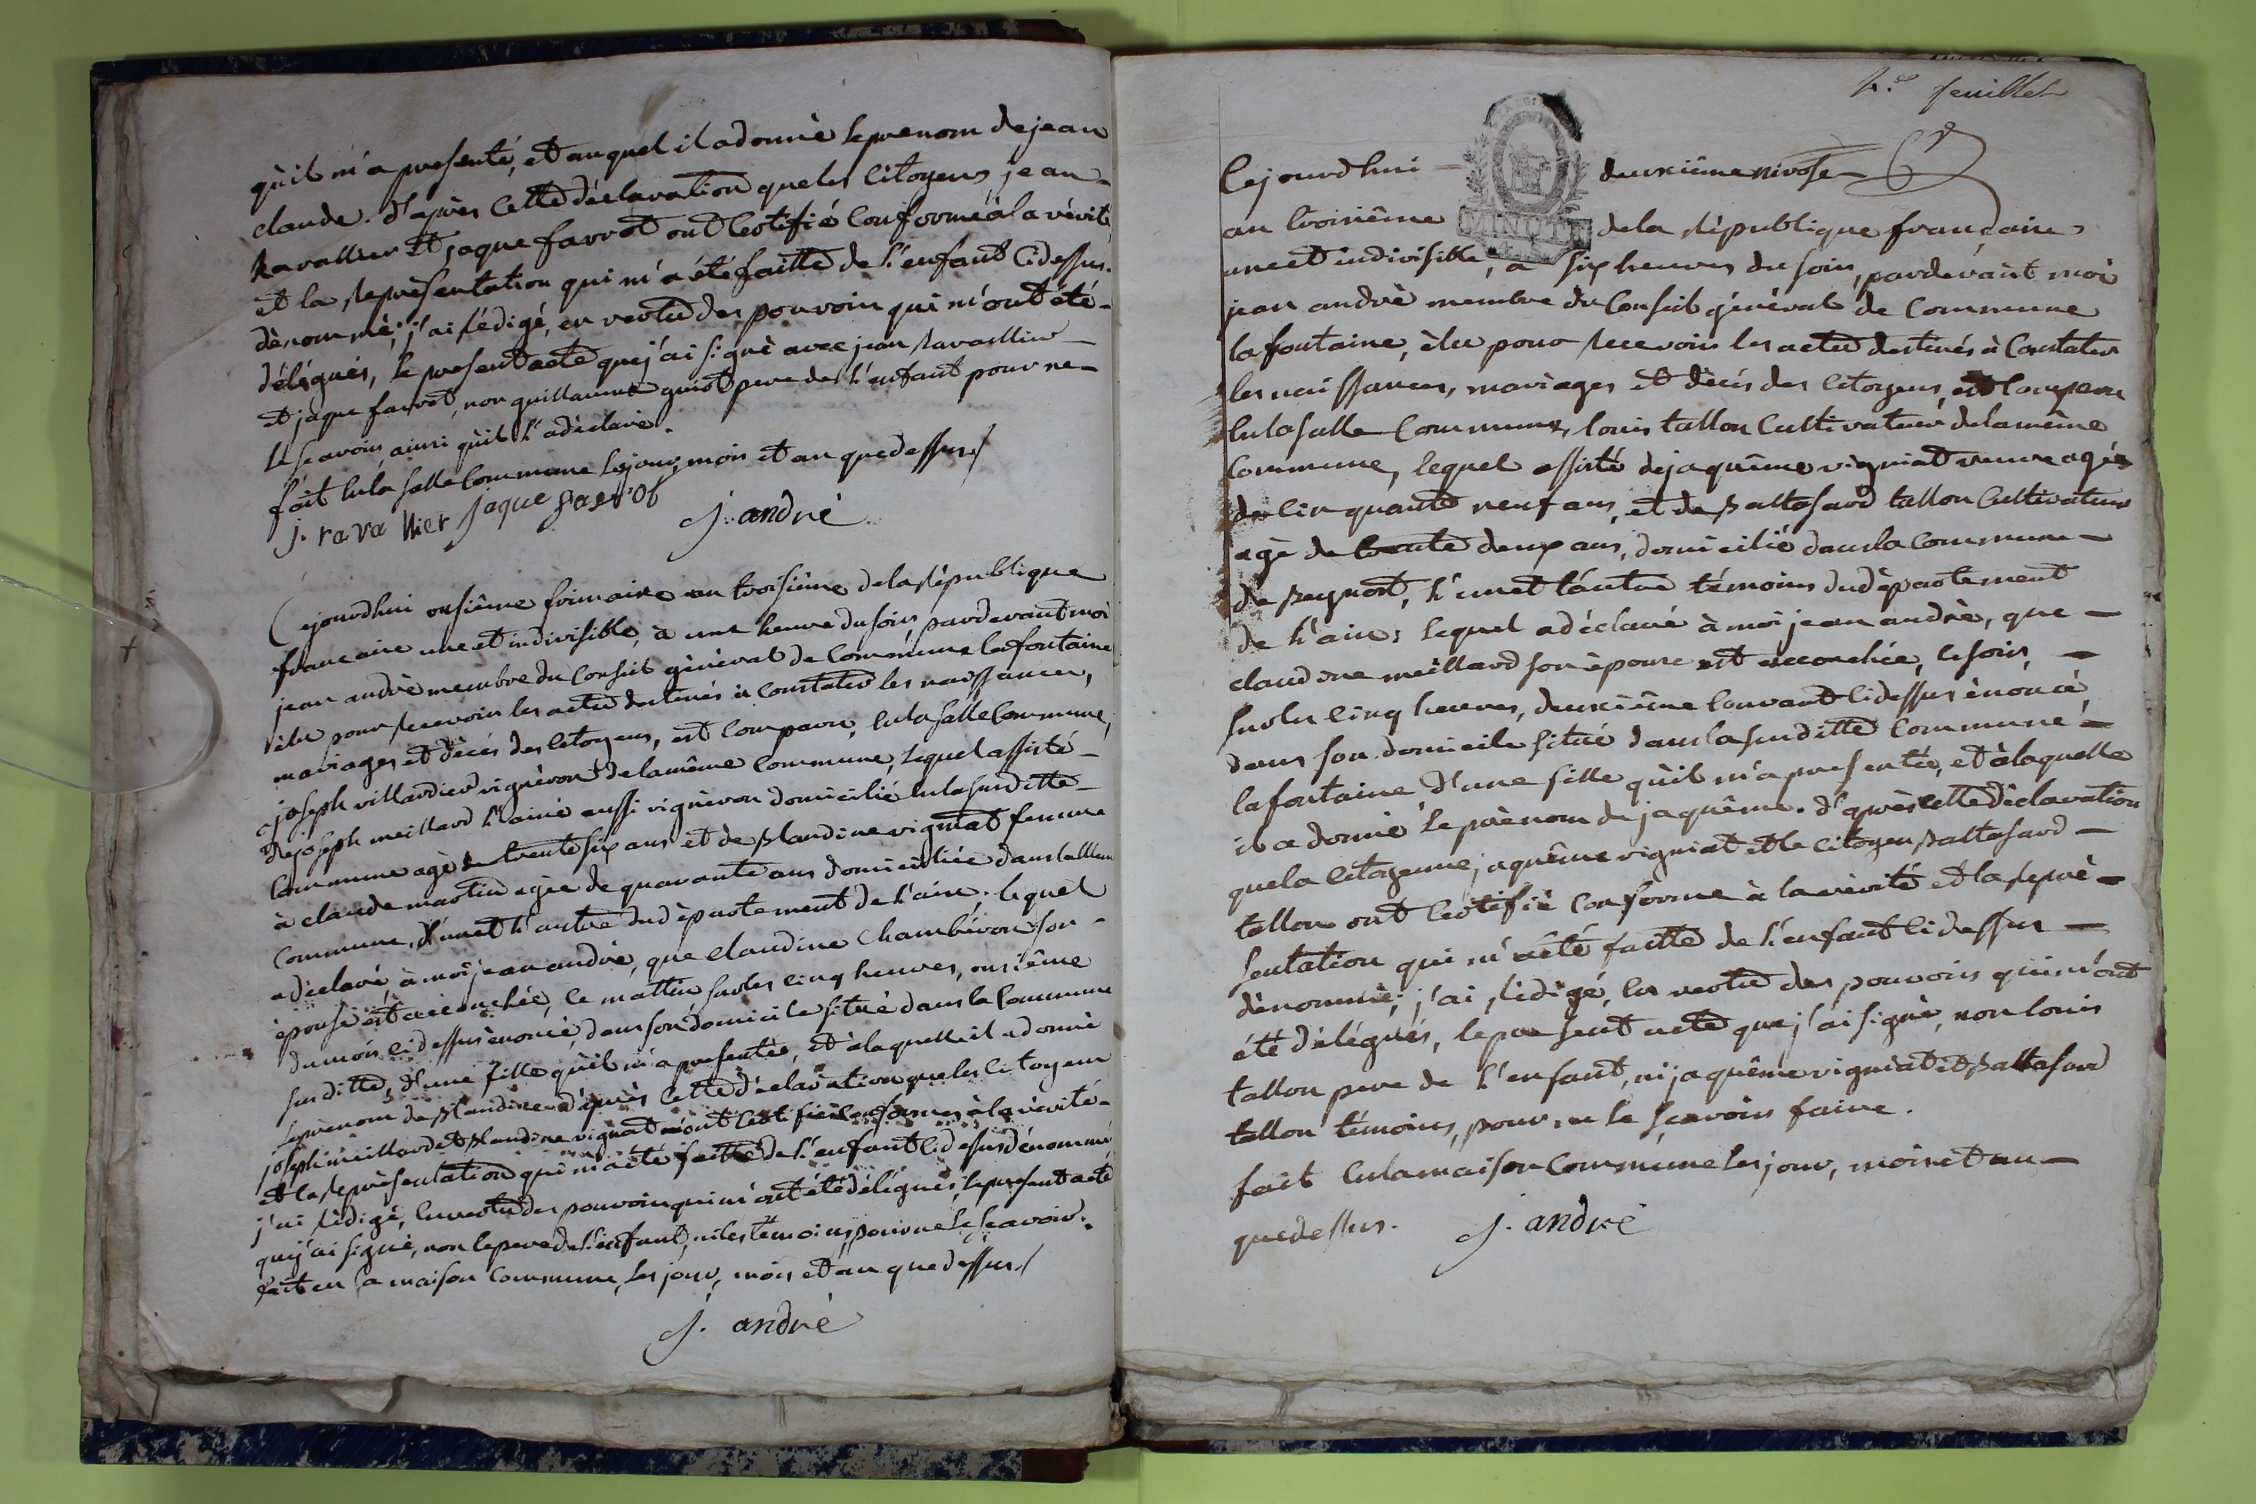 qu'il m'a presenté, et auquel il a donné le prenom de jean
claude. D'après cette déclaration que les citoyens jean
Ravallier et jaque farrot ont certifié conforme à la vérité
et la représentation qui m'a été faitte de l'enfant cidessus
dénommé; j'ai rédigé, en vertu des pouvoirs qui m'ont été
délégués, le present acte que j'ai signé avec jean Ravallier
et jaque farrot, non guillaume guiot pere de l'enfant pour ne
le scavoir, ainsi qu'il l'a déclaré.
fait en la salle commune les jour, mois et an que dessus
j. ravallier jaque farrot j. andré
Cejourdhui onsième frimaire an troisième de la république
francaise une et indivisible, à une heure du soir, pardevant moi
jean andré membre du conseil général de commune lafontaine
élu pour recevoir les actes destinés à constater les naissances,
mariages et décés des citoyens, est comparu, en la salle commune,
joseph villardier vigneron de la même commune, lequel assisté
de joseph meillard l'ainé aussi vigneron domicilié en la susditte
commune agé de trente six ans et de Blandine vigniat femme
à claude martin agée de quarante ans domiciliée dans la ditte
commune, l'un et l'autre du département de l'ain; lequel
a déclaré, à moi jean andré, que claudine chambéron son
épouse est accouchée, ce mattin sur les cinq heures, onsième
du mois cidessus énoncé, dans son domicile situé dans la commune
susditte, d'une fille qu'il m'a presentée, et à laquelle il a donné
le prenom de Blandine. d'après cette déclaration que les citoyens
joseph meillard et Blandine vigniat m'ont certifiée conforme à la vérité
et la représentation qui m'a été faitte de l'enfant cidessus dénommé
j'ai rédigé, en vertu des pouvoirs qui m'ont été délégués, le present acte
que j'ai signé, non le pere de l'enfant, ni les témoins pour ne le scavoir.
fait en la maison commune, les jour, mois et an que dessus
j. andré
4e feuillet
Cejourdhui deuxième nivose
an troisième MINUTE de la république française
une et indivisible, à six heures du soir, pardevant moi
jean andré membre du conseil général de commune
lafontaine, élu pour recevoir les actes destinés à constater
les naissances, mariages et décés des citoyens, est comparu
en la salle commune, louis tallon cultivateur de la même
commune, lequel assisté de jaquême vigniat veuve agée
de cinquante neuf ans, et de Baltasard tallon cultivateur
agé de trente deux ans, domicilié dans la commune
de l'un et l'autre témoins du département
de l'ain; lequel a déclaré à moi jean andré, que
claudine meillard son épouse est accouchée, ce soir,
sur les cinq heures, deuxième courant cidessus énoncé,
dans son domicile situé dans la susditte commune
lafontaine d'une fille qu'il m'a presentée, et à laquelle
il a donné le prénom de jaquême. D'après cette déclaration
que la citoyenne jaquême vigniat et le citoyen Baltasard
tallon ont certifié conforme à la vérité et la repré
sentation qui m'a été faitte de l'enfant cidessus
dénommée; j'ai rédigé, en vertu des pouvoirs qui m'ont
été délégués, le present acte que j'ai signé, non louis
tallon pere de l'enfant, ni jaquême vigniat et Baltasard
tallon témoins, pour ne le scavoir faire.
fait en la maison commune les jour, mois et an
que dessus. j. andré